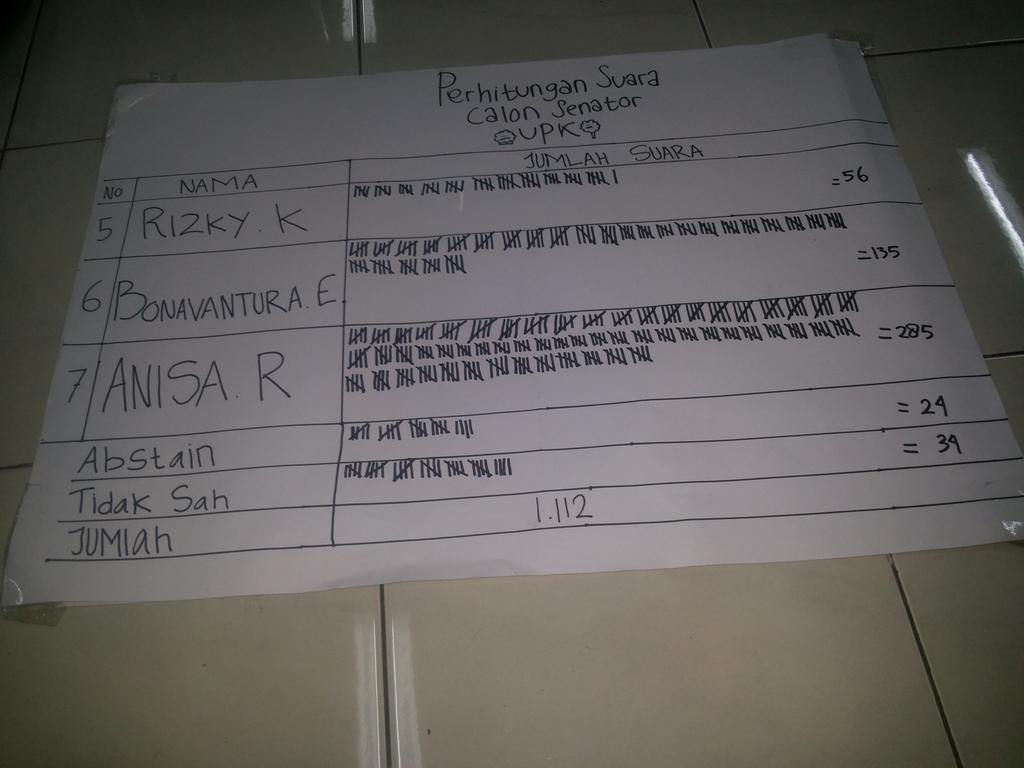 Perhitungan Suara
Calon Senator
UPK
No NAMA JUMLAH SUARA
5 RIZKY. K =56
6 BONAVANTURA. E. =135
7 ANISA. R =285
Abstain = 24
Tidak Sah = 34
JUMlah 1.112